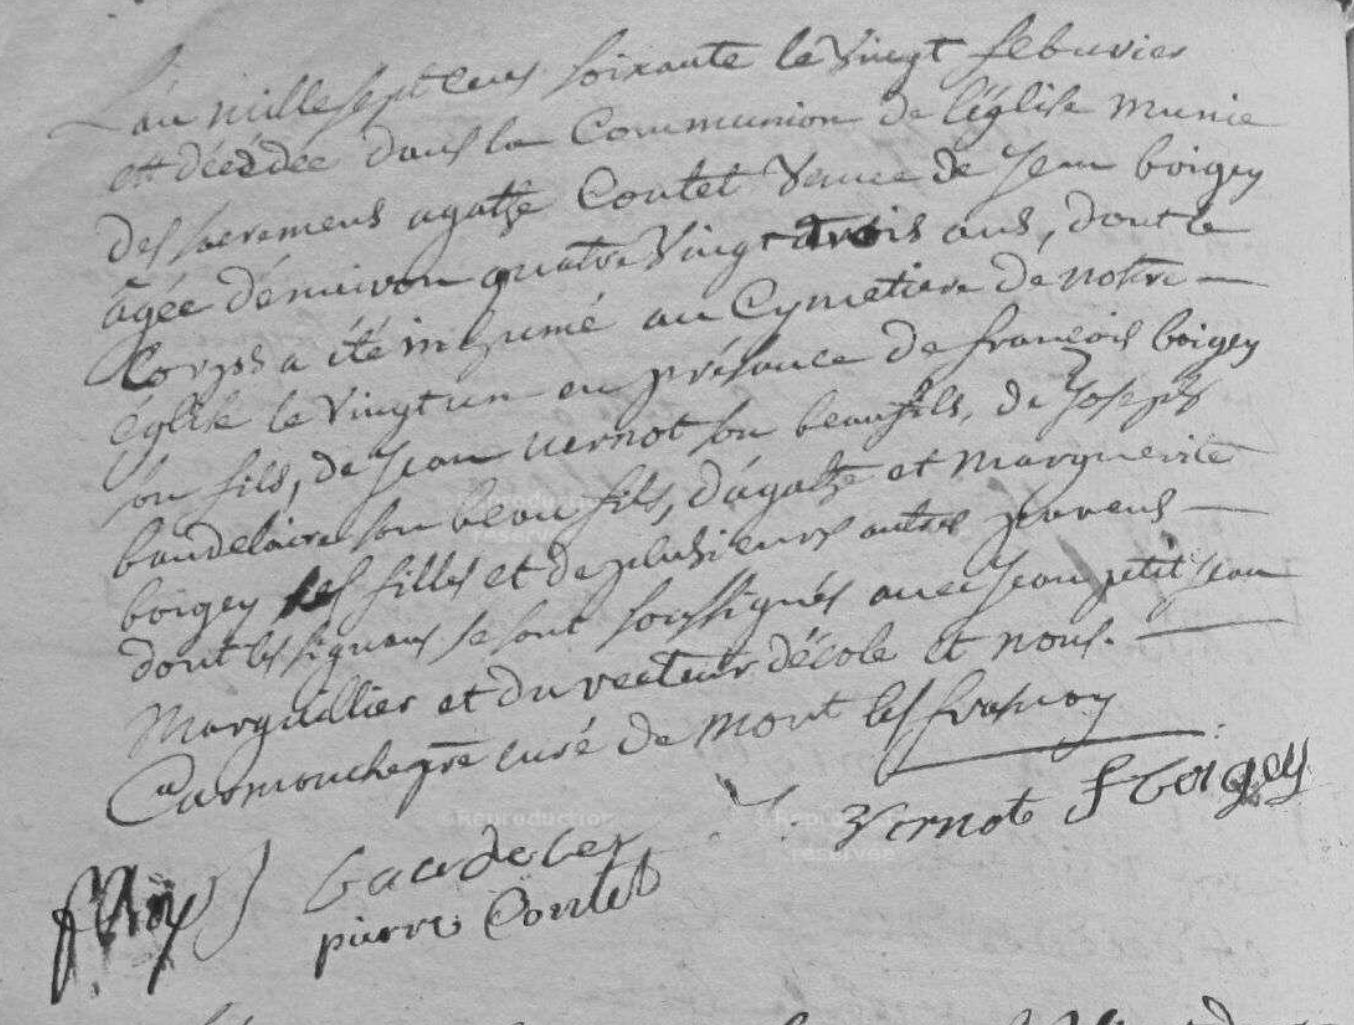 L'an mille sept cens soixante le vingt febuvier
est décédée dans la Communion de l'église munie
des sacremens agathe Coutet veuve de Jean boigey
âgée d'environ quatre vingt trois ans, dont le
Corps a été inhumé au Cymetiere de notre
église le vingt un en présance de françois boigey
son fils, de Jean vernot son beau fils, de Joseph
baudelaire son beau fils, d'agathe et marguerite
boigey ses filles et de plusieurs autres parens
dont les signans se sont soussignés avec Jean petit jean
Marguillier et du recteur d'école et nous.
Carmouche ptre curé de mont les
Vernot f boigey
baudeler
pierre Coutet
© Reproduction réservée
© Reproduction
© Reproduction réservée